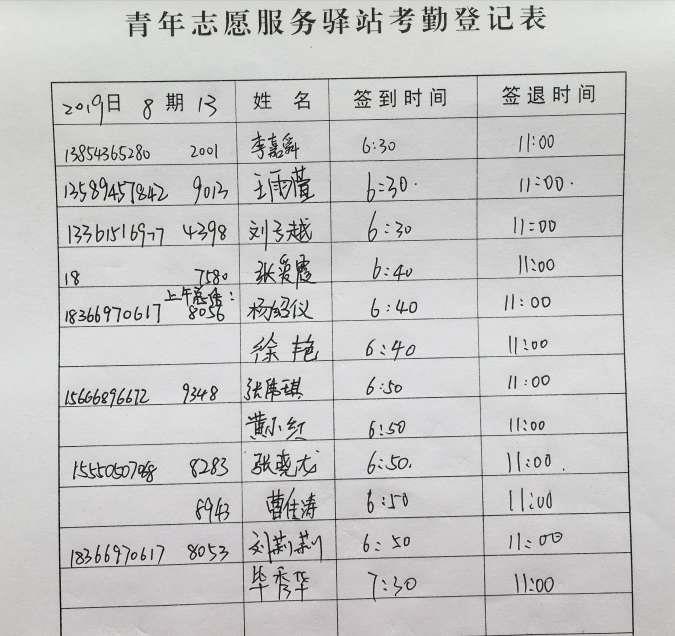 青年志愿服务驿站考勤登记表
2019日 8期 13 姓名 签到时间 签退时间
13854365280 2001 李嘉舜 6:30 11:00
13589457842 9013 王雨萱 6:30. 11:00.
4398 刘子越 6:30 11:00
18 7580 张爱霞 6:40 11:00
18366970617 8056 杨绍仪 6:40 11:00
徐艳 6:40 11:00
15666896672 9348 张伟琪 6:50 11:00
黄小红 6:50 11:00
8283 张尧尤 6:50. 11:00.
8943 曹佳涛 6:50 11:00
18366970617 8053 刘莉莉 6:50 11:00
毕秀华 7:30 11:00